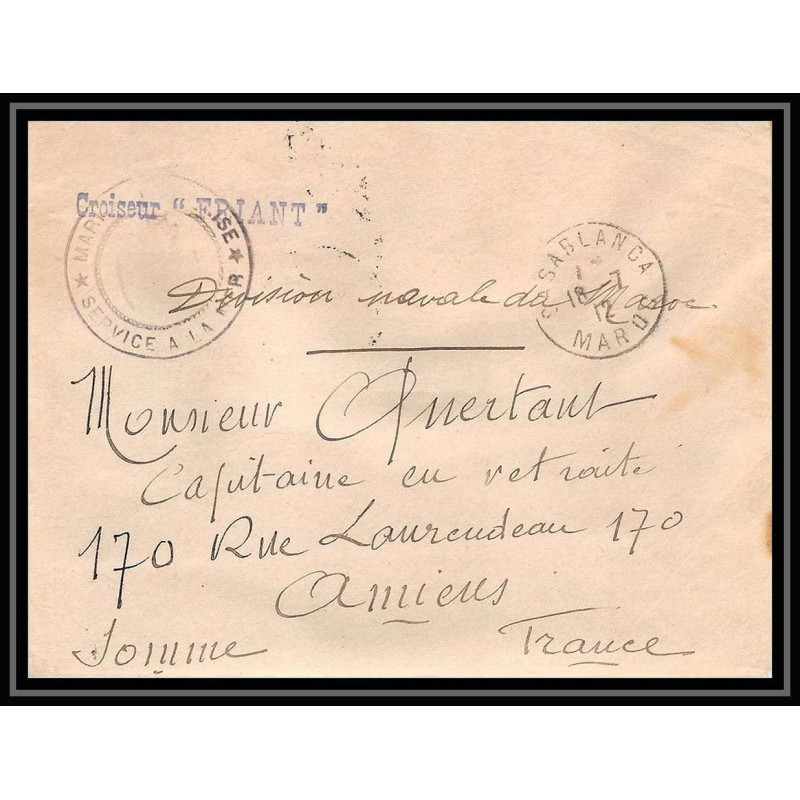 Croiseur "FRIANT"
MARI ISE
★ SERVICE A LA MER ★
CASABLANCA
18 7
12
MAROC
Division navale du Maroc.
Monsieur Quertant
Capitaine en retraite
170 Rue Laurendeau 170
Amiens
Somme France